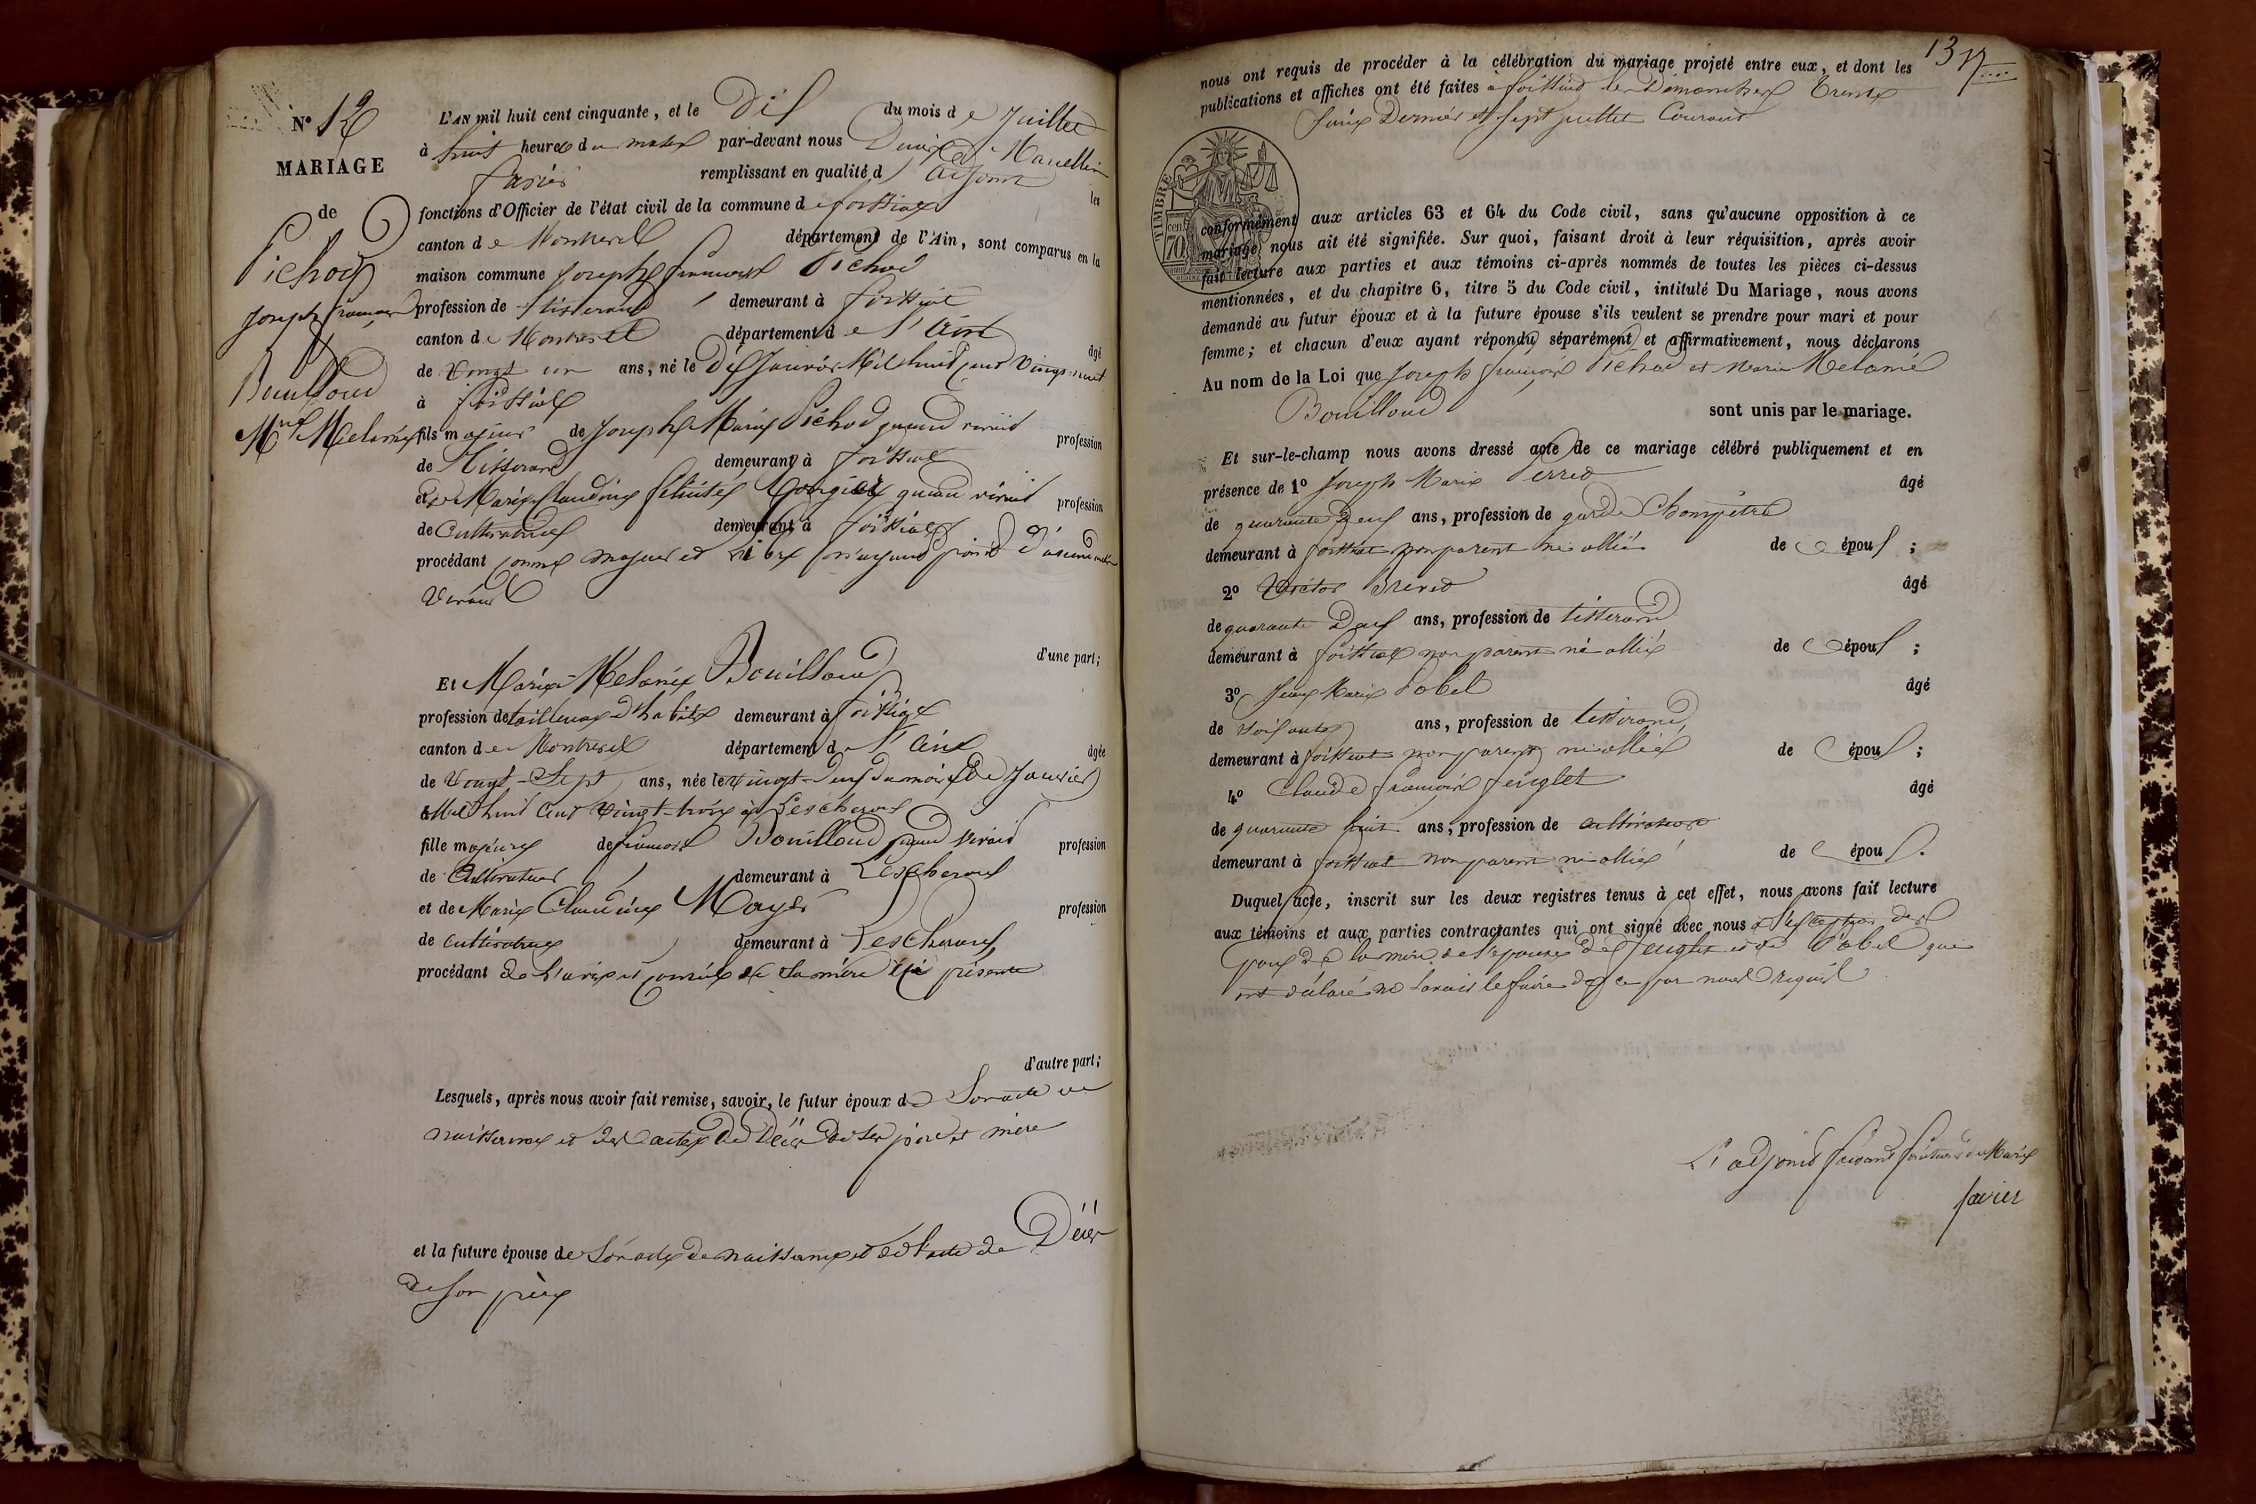 N° 12
MARIAGE
de
Pichod
Joseph françois
Bouilloud
Mie Melanie
L'AN mil huit cent cinquante, et le Dis du mois de Juillet
à huit heures du matin par-devant nous Denis Marcellin
favier remplissant en qualité d'adjoint les
fonctions d'Officier de l'état civil de la commune de foissiat
canton de Montrevel département de l'Ain, sont comparus en la
maison commune Joseph françois Pichod
profession de tisserand demeurant à foissiat
canton de Montrevel département de l'Ain âgé
de vingt un ans, né le Dis Janvier Mil huit cent vingt neuf
à foissiat
fils majeur de Joseph Marie Pichod quand vivait profession
de Tisserand demeurant à foissiat
et de Marie Claudine felicité quand vivait profession
de Cultivatrice demeurant à foissiat
procédant comme majeur et Libre n'ayant point d'
d'une part;
Et Marie Melanie Bouilloud
profession de tailleuse d'habits demeurant à foissiat
canton de Montrevel département de l'Ain âgée
de vingt-Sept ans, née le vingt-deux du mois de Janvier
Mil huit Cent vingt-trois à Lescheroux
fille majeure de françois Bouilloud quand vivait profession
de Cultivateur demeurant à Lescheroux
et de Marie Claudine Moyer profession
de cultivatrice demeurant à Lescheroux
procédant de l'avis et conseil de sa mère ici présente
d'autre part;
Lesquels, après nous avoir fait remise, savoir, le futur époux de Son acte de
naissance et des actes de Décès de ses père et mère
et la future épouse de Son acte de naissance et de l'acte de Décès
de son père
13
nous ont requis de procéder à la célébration du mariage projeté entre eux, et dont les
publications et affiches ont été faites à foissiat les Dimanches Trente
Juin Dernier et Sept juillet Courant
TIMBRE
cent 70
conformément aux articles 63 et 64 du Code civil, sans qu'aucune opposition à ce
mariage nous ait été signifiée. Sur quoi, faisant droit à leur réquisition, après avoir
fait lecture aux parties et aux témoins ci-après nommés de toutes les pièces ci-dessus
mentionnées, et du chapitre 6, titre 5 du Code civil, intitulé Du Mariage, nous avons
demandé au futur époux et à la future épouse s'ils veulent se prendre pour mari et pour
femme; et chacun d'eux ayant répondu séparément et affirmativement, nous déclarons
Au nom de la Loi que Joseph françois Pichod et Marie Melanie
Bouilloud sont unis par le mariage.
Et sur-le-champ nous avons dressé acte de ce mariage célébré publiquement et en
présence de 1° Joseph Marie Perret âgé
de quarante neuf ans, profession de garde Champêtre
demeurant à foissiat non parent ni allié de époux;
2° Victor Brevet âgé
de quarante Deux ans, profession de tisserand
demeurant à foissiat non parent ni allié de époux;
3° Jean Marie Pobel âgé
de soixante ans, profession de tisserand
demeurant à foissiat non parent ni allié de époux;
4° Claude françois feuglet âgé
de quarante huit ans, profession de cultivateur
demeurant à foissiat non parent ni allié de époux.
Duquel acte, inscrit sur les deux registres tenus à cet effet, nous avons fait lecture
aux témoins et aux parties contractantes qui ont signé avec nous à l'exception des
de la mère de l'épouse de feuglet et de Pobel qui
ont déclaré ne savoir le faire de ce par nous requis
L'adjoint faisant fonctions de Maire
favier